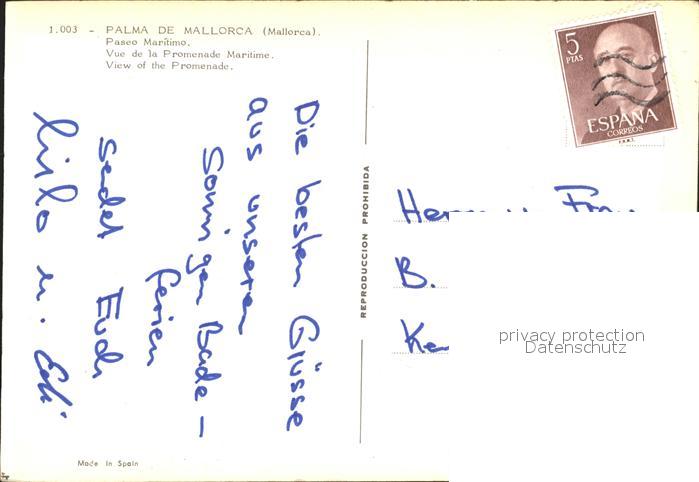 1.003 - PALMA DE MALLORCA (Mallorca).
Paseo Marítimo.
Vue de la Promenade Maritime.
View of the Promenade.
5
PTAS
ESPAÑA
CORREOS
F.N.M.T.
Die besten Grüsse
aus unseren
Sonnigen Bade-
ferien
sendet Euch
u. Edi
REPRODUCCION PROHIBIDA
Herr u. Frau
B.
privacy protection
Datenschutz
Made in Spain